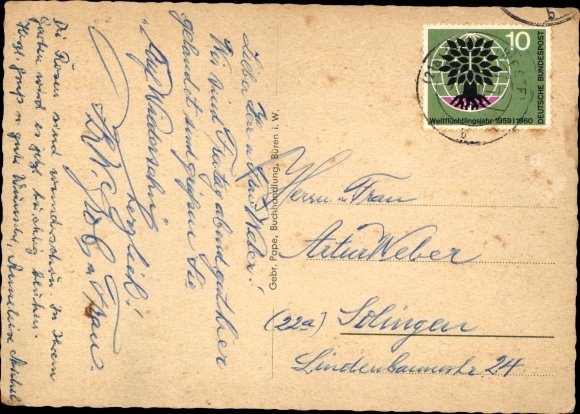 Lieber Herr u. Frau Weber!
Wir sind Freitag abend gut hier
gelandet und grüßen Sie
"Auf Wiedersehen
herzlich!
u. Frau.
Die Rosen sind wunderschön. In Ihrem
Garten wird es jetzt tüchtig blühen.
Herzl. Grüße u. gute Wünsche, Anneliese
Gebr. Pape, Buchhandlung, Büren i. W.
10
DEUTSCHE BUNDESPOST
Weltflüchtlingsjahr 1959/1960
b
b
Herrn u. Frau
Artur Weber
(22a) Solingen
Lindenbaumstr. 24